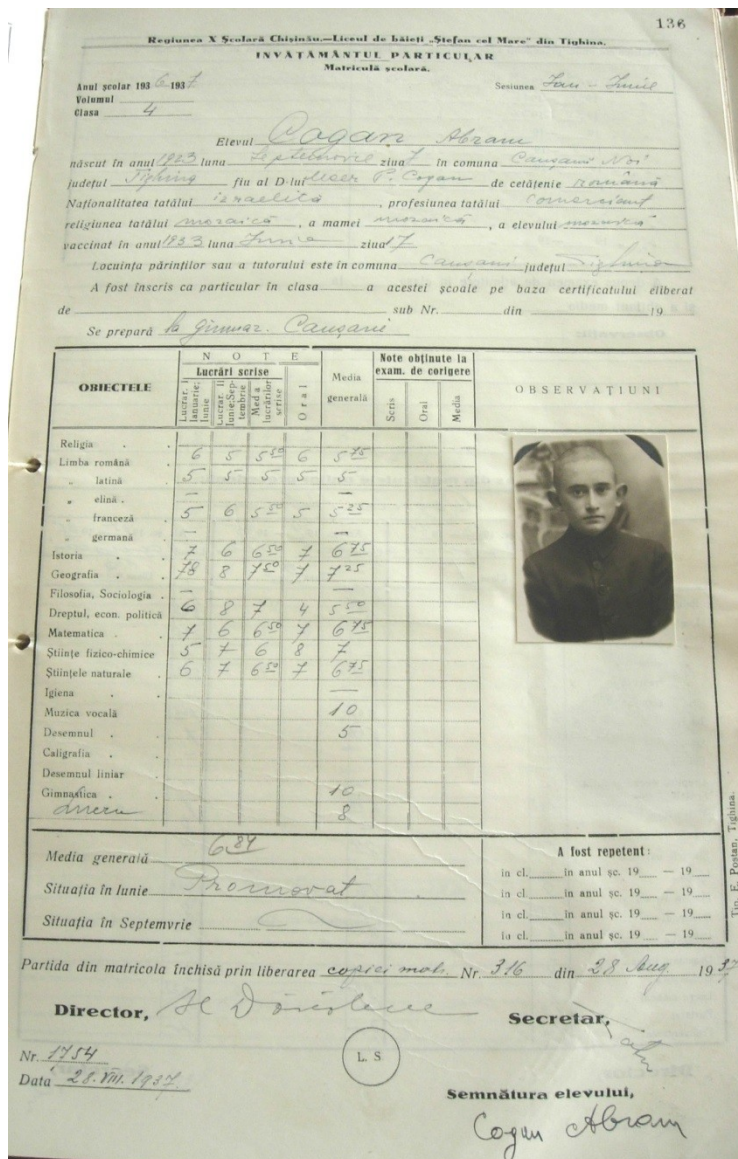 136
Regiunea X Școlară Chișinău.—Liceul de băieți „Ștefan cel Mare" din Tighina.
INVĂȚĂMÂNTUL PARTICULAR
Matriculă școlară.
Anul școlar 1936-1937
Sesiunea Ian - Iunie
Volumul
Clasa 4
Elevul Cogan Abram
născut în anul 1923 luna Septembrie ziua 7 în comuna Causani Noi
județul Tighina fiu al D-lui Meer P. Cogan de cetățenie română
Naționalitatea tatălui israelita, profesiunea tatălui comersiant
religiunea tatălui mozaică, a mamei mozaică, a elevului mozaică
vaccinat în anul 1933 luna Iunie ziua 17
Locuința părinților sau a tutorului este în comuna Causani județul Tighina
A fost înscris ca particular în clasa a acestei școale pe baza certificatului eliberat
de sub Nr. din 19
Se prepară la gimnaz. Causani
OBIECTELE
NOTE
Lucrări scrise
Lucrar. I Ianuarie, Iunie
Lucrar. II Iunie, Septembrie
Media lucrărilor scrise
Oral
Media generală
Note obținute la exam. de corigere
Scris
Oral
Media
OBSERVAȚIUNI
Religia
Limba română 6 5 5 50 6 5 75
„ latină 5 5 5 5 5
„ elină — —
„ franceză 5 6 5 50 5 5 25
„ germană — —
Istoria 7 6 6 50 7 6 75
Geografia 7 8 8 7 50 7 7 25
Filosofia, Sociologia — —
Dreptul, econ. politică 6 8 7 4 5 50
Matematica 7 6 6 50 7 6 75
Științe fizico-chimice 5 7 6 8 7
Științele naturale 6 7 6 50 7 6 75
Igiena —
Muzica vocală 10
Desemnul 5
Caligrafia
Desemnul liniar
Gimnastica 10
8
Media generală 6 84
Situația în Iunie Promovat
Situația în Septemvrie
A fost repetent:
in cl. in anul șc. 19 — 19
in cl. in anul șc. 19 — 19
in cl. in anul șc. 19 — 19
in cl. in anul șc. 19 — 19
Tip. E. Postan, Tighina.
Partida din matricola închisă prin liberarea copiei mat. Nr. 316 din 28 Aug. 1937
Director,
Secretar,
L. S
Nr. 1754
Data 28.VIII.1937
Semnătura elevului,
Cogan Abram